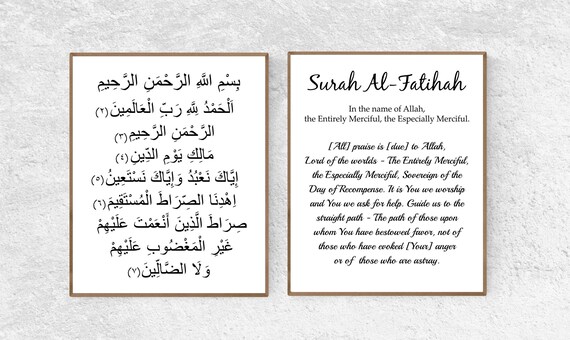 بِسْمِ اللَّهِ الرَّحْمَنِ الرَّحِيمِ
اَلْحَمْدُ لِلَّهِ رَبِّ الْعَالَمِينَ (٢)
الرَّحْمَنِ الرَّحِيمِ (٣)
مَالِكِ يَوْمِ الدِّينِ (٤)
إِيَّاكَ نَعْبُدُ وَإِيَّاكَ نَسْتَعِينُ (٥)
اِهْدِنَا الصِّرَاطَ الْمُسْتَقِيمَ (٦)
صِرَاطَ الَّذِينَ أَنْعَمْتَ عَلَيْهِمْ
غَيْرِ الْمَغْضُوبِ عَلَيْهِمْ
وَلَا الضَّالِّينَ (٧)
Surah Al-Fatihah
In the name of Allah,
the Entirely Merciful, the Especially Merciful.
[All] praise is [due] to Allah,
Lord of the worlds - The Entirely Merciful,
the Especially Merciful, Sovereign of the
Day of Recompense. It is You we worship
and You we ask for help. Guide us to the
straight path - The path of those upon
whom You have bestowed favor, not of
those who have evoked [Your] anger
or of those who are astray.